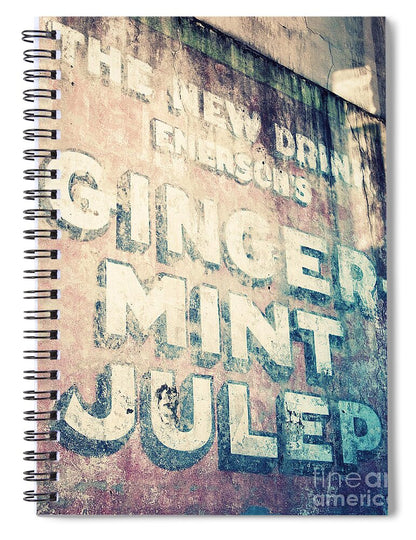 THE NEW DRINK
EMERSON'S
GINGER-
MINT
JULEP
fine art
america